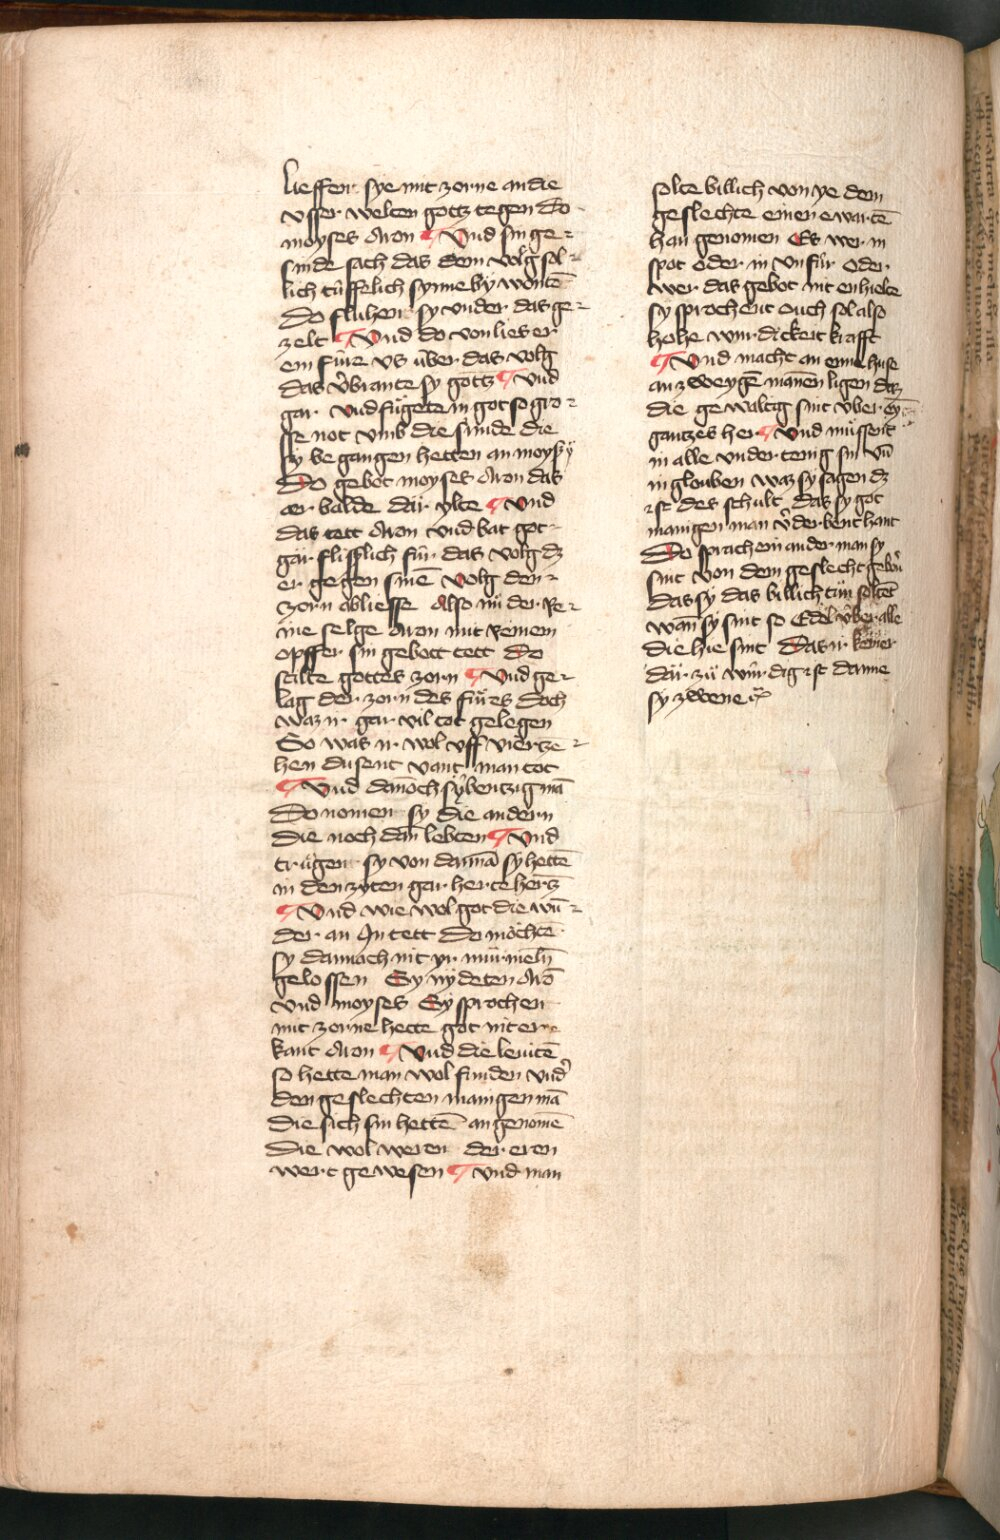 Lieffen sye mit zorne an die
vsser welten gottz tegen Do
moyses Aron ¶ Und sin ge⸗
sinde sach das dem volg sol⸗
lich tüffelich synne bÿ wontē
Do fluhen sy vnder das ge⸗
zelt ¶ Und do von lies er
ein füre vs über das volg
das v̉brante sy gottz ¶ Und
gar vnd fuͤgete in got so gro⸗
sse not vmb die sinde die
sy be gangen hetten an moysy
Do gebot moyses Aron das
er balde dar ylte ¶ Und
das tett Aron vnd bat got
gar flisslich für das volg dz
er gegen sinē volg den⸗
zorn abliesse Also nü der Re⸗
ine selge Aron mit Reinem
opffer sin gebott tett Do
stilte gottes zorn ¶ Und ge⸗
lag der zorn des füres doch
waz ir gar vil tot gelegen
So was ir wol vff viertze⸗
hen dusent vant man tot
¶ Und dānoch sybentzig mā
Do nomen sy die andern
die noch dan lebten ¶ Und
truͤgen sy von dannā sy hettē
in den zyten gar herte hertz
¶ Und wie wol got die wū⸗
der an In tett Do möchtē
sy dannoch nit yr mürmeln
gelossen Sy nydeten Arō
vnd moyses Sy sprochen
mit zorne hette got nit er
kant Aron ¶ Und die leuitē
so hette man wol finden vnd̉
den geslechten manigen mā
die sich sin hettē an genomē
Die wol weren der eren
wert gewesen ¶ Und man
solte billich von ye dem
geslechte einen ewartē
han genomen Es wer in
spot oder in vnfür Oder
wer das gebot nit enhielte
sy sprochent ouch sol also
hohe wirdickeit krafft
¶ Und macht an eime huse
an zweygē manēn ligen daz
die gewaltig sint v̉ber
gantzes her ¶ Und müssent
in alle vndertenig sin vn̄
in glouben waz sy sagen dz
ist des schult das sy got
manigen man v̉derbent hant
Do sprach ein ander man sy
sint von dem geslecht geborn
das sy das billich tün soltēt
wan sy sint so Edel v̉ber alle
die hie sint Das ir keiner
dar zü wirdig ist danne
sy zwene